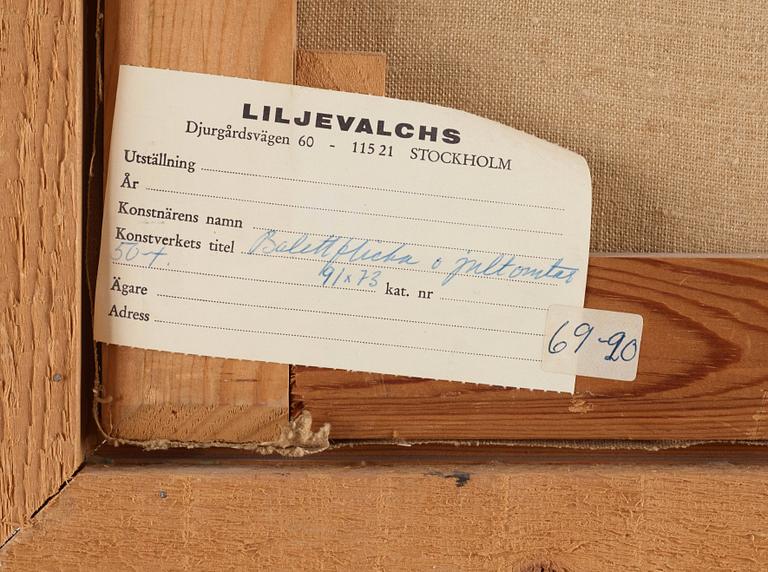 LILJEVALCHS
Djurgårdsvägen 60 - 115 21 STOCKHOLM
Utställning
År
Konstnärens namn
Konstverkets titel Balettflicka o jultomtar
50-t.
91x73 kat. nr
Ägare
Adress
69-90